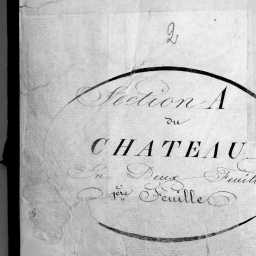 2
Section A
du
CHATEAU
En Deux Feuill
1ère Feuille